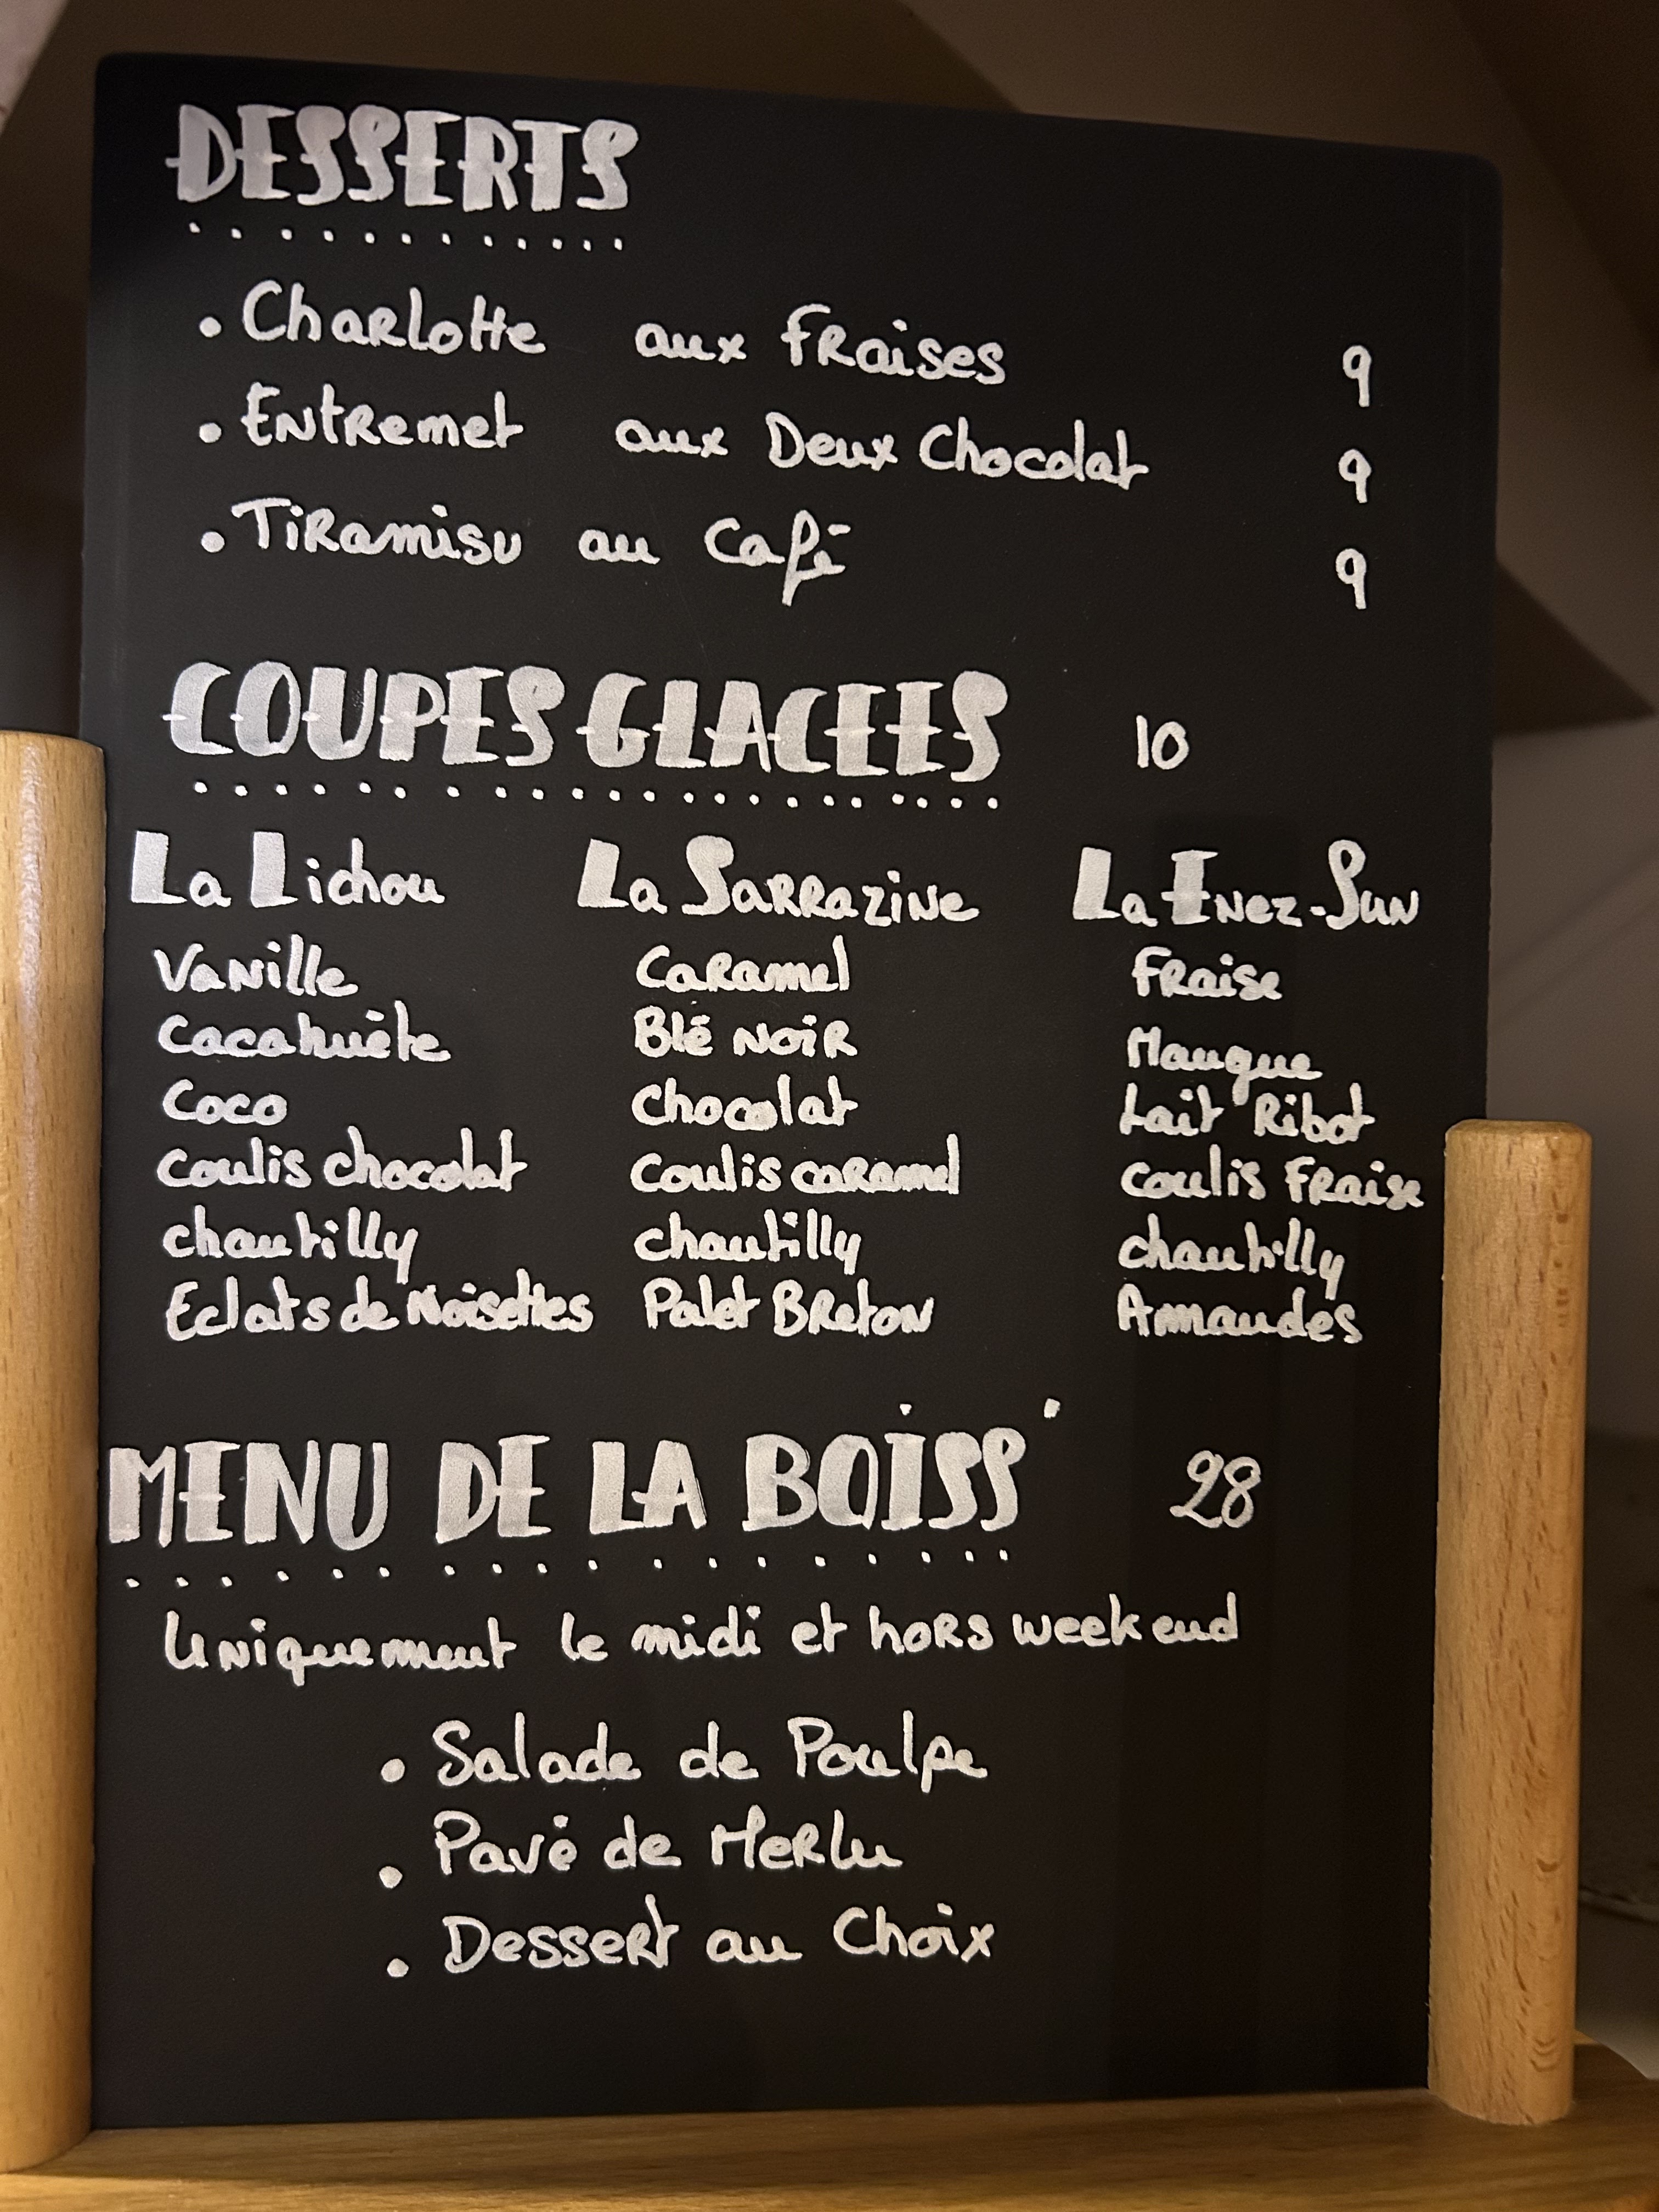 DESSERTS
• Charlotte aux Fraises 9
• Entremet aux Deux Chocolat 9
• Tiramisu au Café 9
COUPES GLACEES 10
La Lichou
Vanille
Cacahuète
Coco
Coulis chocolat
chantilly
Eclats de Noisettes
La Sarrazine
Caramel
Blé Noir
Chocolat
Coulis caramel
chantilly
Palet Breton
La Enez-Sun
Fraise
Mangue
Lait Ribot
Coulis Fraise
chantilly
Amandes
MENU DE LA BOISS' 28
Uniquement le midi et hors week end
• Salade de Poulpe
• Pavé de Merlu
• Dessert au Choix